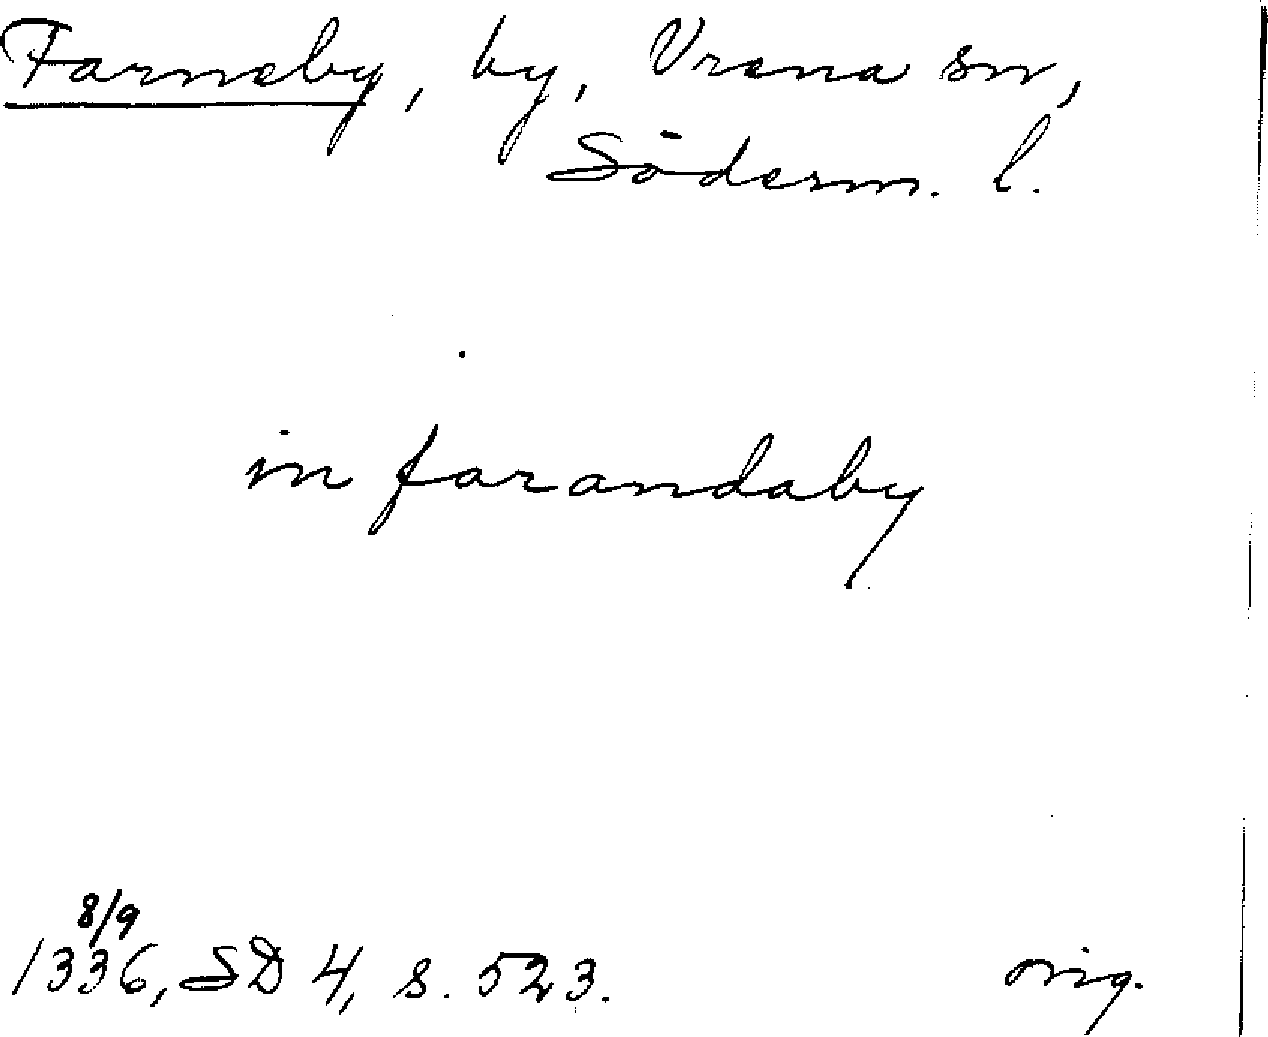 Farneby, by, Vrena sn,
Söderm. l.
in farandaby
8/9
1336, SD 4, s. 523. orig.